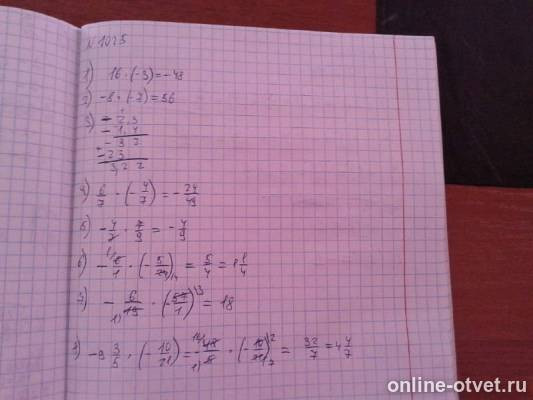 N 1025
1) 16 · (-3) = -48
2) -8 · (-7) = 56
3) - 2,3
- 1,4
- 9 2
+ - 2 3
- 3,2 2
4) 6/7 · (-4/7) = - 24/49
5) - 4/7 · 7/9 = - 4/9
6) - 6/1 · (-5/24) = 5/4 = 1 1/4
7) - 6/19 · (-57/1) = 18
8) -9 3/5 · (-10/21) = 48/5 · (-10/21) = 32/7 = 4 4/7
online-otvet.ru